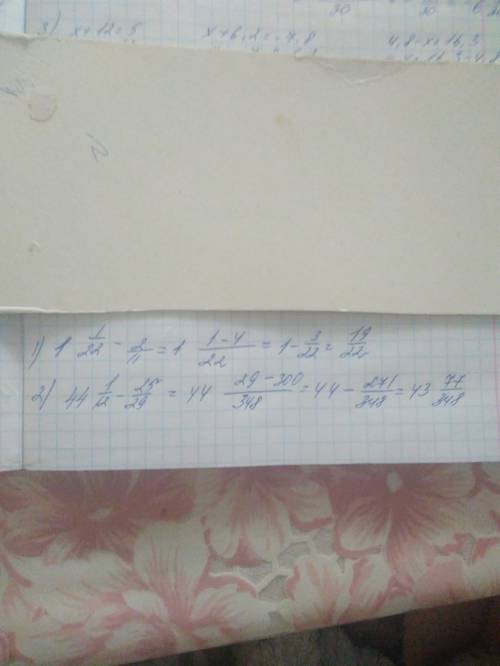 3) x + 12 = 5 x + 6,2 = -7,8 4,8 - x = 16,3
1) 1 1/22 - 2/11 = 1 (1-4)/22 = 1 - 3/22 = 19/22
2) 44 1/12 - 25/29 = 44 (29-300)/348 = 44 - 271/348 = 43 77/348